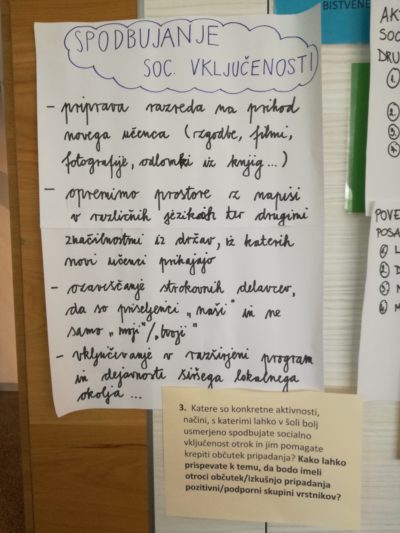 SPODBUJANJE
SOC. VKLJUČENOSTI
- priprava razreda na prihod
novega učenca (zgodbe, filmi,
fotografije, odlomki iz knjig...)
- opremimo prostore z napisi
v različnih jezikih ter drugimi
značilnostmi iz držav, iz katerih
novi učenci prihajajo
- ozaveščanje strokovnih delavcev,
da so priseljenci "naši" in ne
samo "moji"/"tvoji"
- vključevanje v razširjeni program
in dejavnosti širšega lokalnega
okolja ...
3. Katere so konkretne aktivnosti,
načini, s katerimi lahko v šoli bolj
usmerjeno spodbujate socialno
vključenost otrok in jim pomagate
krepiti občutek pripadanja? Kako lahko
prispevate k temu, da bodo imeli
otroci občutek/izkušnjo pripadanja
pozitivni/podporni skupini vrstnikov?
BISTVENE
AK
SOC
DRU
1
2
3
4
POVE
POSA
1 L
2 D
3 N
4 M